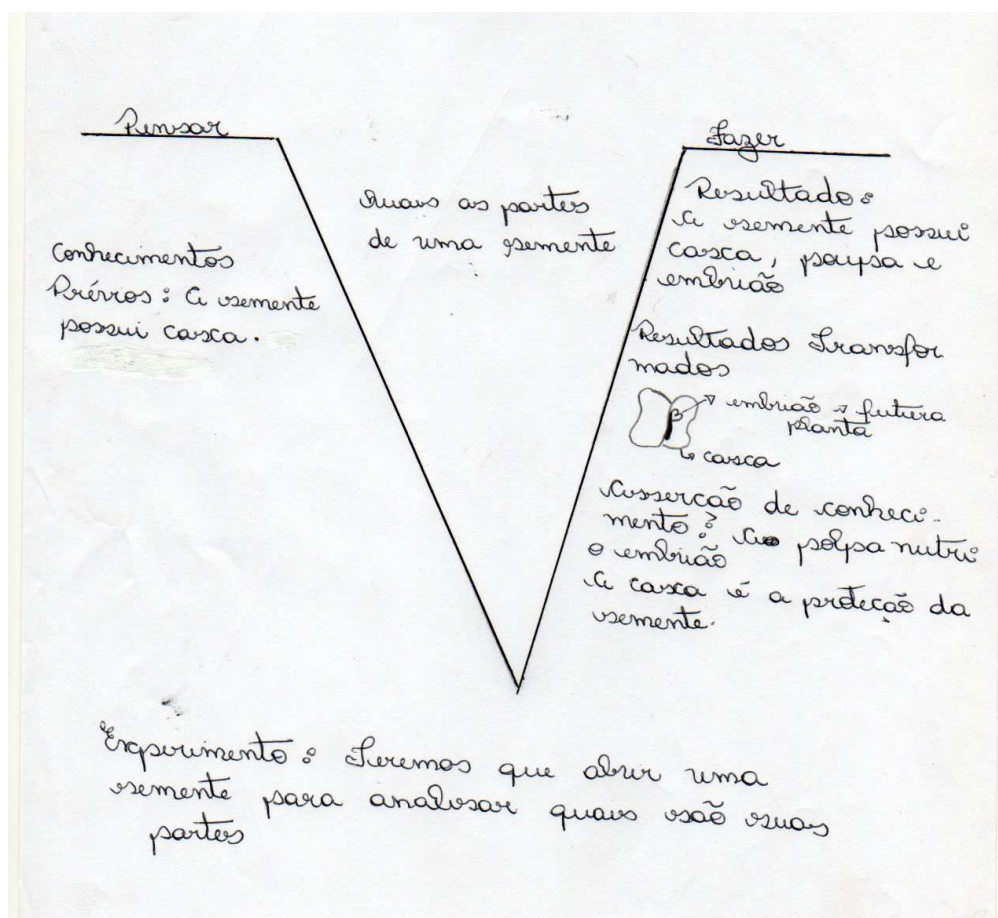 Pensar
Fazer
Quais as partes
de uma semente
Conhecimentos
Prévios: A semente
possui casca.
Resultado:
A semente possui
casca, poupa e
embrião
Resultados Transfor
mados
embrião → futura
planta
casca
Asserção de conheci-
mento: A polpa nutri
o embrião
A casca é a proteção da
semente.
Experimento: Teremos que abrir uma
semente para analisar quais são suas
partes